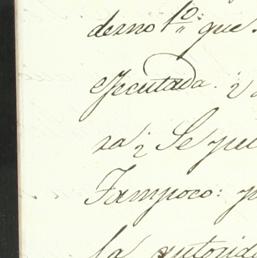 derno 1º que
Jecutada. y
ra; Se pu
Tampoco: p
la autorid